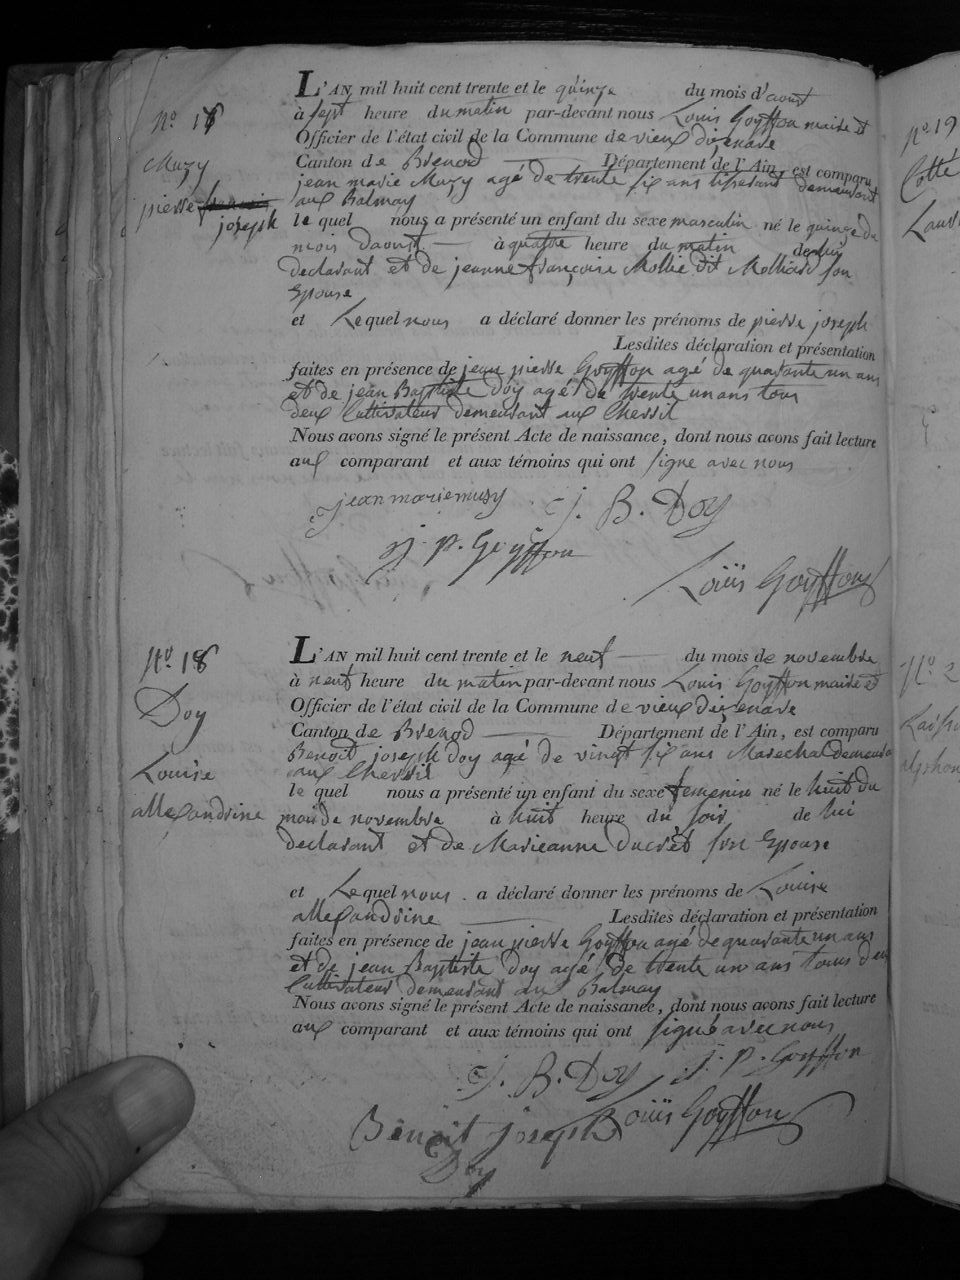 N° 17
Muzy
pierre
joseph
L'AN mil huit cent trente et le quinze du mois d'aout
à sept heure du matin par-devant nous Louis Goyffon maire et
Officier de l'état civil de la Commune de vieux dizenave
Canton de Brenod Département de l'Ain, est comparu
jean marie Muzy agé de trente six ans tisserand demeurant
aux Balmay
le quel nous a présenté un enfant du sexe masculin né le quinze du
mois d'aoust à quatre heure du matin de lui
declarant et de jeanne françoise Mollie dit Molliard son
Epouse
et Lequel nous a déclaré donner les prénoms de pierre joseph
Lesdites déclaration et présentation
faites en présence de jean pierre Goyffon agé de quarante un ans
et de jean Baptiste Doy agé de trente un ans tous
deux Cultivateur demeurant aux Chevril
Nous avons signé le présent Acte de naissance, dont nous avons fait lecture
aux comparant et aux témoins qui ont signe avec nous
jean marie muzy J. B. Doy
j. p. Goyffon
Loüis Goyffon
N° 18
Doy
Louise
allexandrine
L'AN mil huit cent trente et le neuf du mois de novembre
à neuf heure du matin par-devant nous Louis Goyffon maire et
Officier de l'état civil de la Commune de vieux dizenave
Canton de Brenod Département de l'Ain, est comparu
Benoit joseph Doy agé de vingt six ans Marechal demeurant
aux Chevril
le quel nous a présenté un enfant du sexe femenin né le huit du
moi de novembre à huit heure du soir de lui
declarant et de Marieanne Ducret son Epouse
et Lequel nous a déclaré donner les prénoms de Louise
allexandrine Lesdites déclaration et présentation
faites en présence de jean pierre Goyffon agé de quarante un ans
et de jean Baptiste Doy agé de trente un ans tous deux
Cultivateur demeurant aux Balmay
Nous avons signé le présent Acte de naissance, dont nous avons fait lecture
aux comparant et aux témoins qui ont signé avec nous
J. B. Doy j. p. Goyffon
Benoit joseph Loüis Goyffon
Doy
N° 19
N° 2